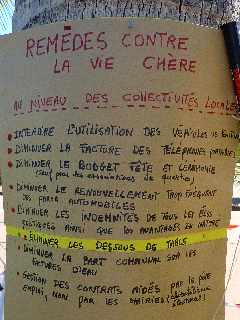 REMÈDES CONTRE
LA VIE CHÈRE
AU NIVEAU DES COLLECTIVITÉS LOCALES
• INTERDIRE L'UTILISATION DES VEHICULES
• DIMINUER LA FACTURE DES TÉLÉPHONES
• DIMINUER LE BUDGET FÊTE ET CEREMONIE
(sauf pour les associations de quartier)
• DIMINUER LE RENOUVELLEMENT TROP FREQUENT
DES PARCS AUTOMOBILES
• DIMINUER LES INDEMNITES DE TOUS LES ELUS
AINSI QUE LES AVANTAGES EN NATURE
• ELIMINER LES DESSOUS DE TABLE
• DIMINUER LA PART COMMUNAL SUR LES
FACTURES D'EAU
• GESTION DES CONTRATS AIDÉS PAR LE POLE
EMPLOI NON PAR LES MAIRIES